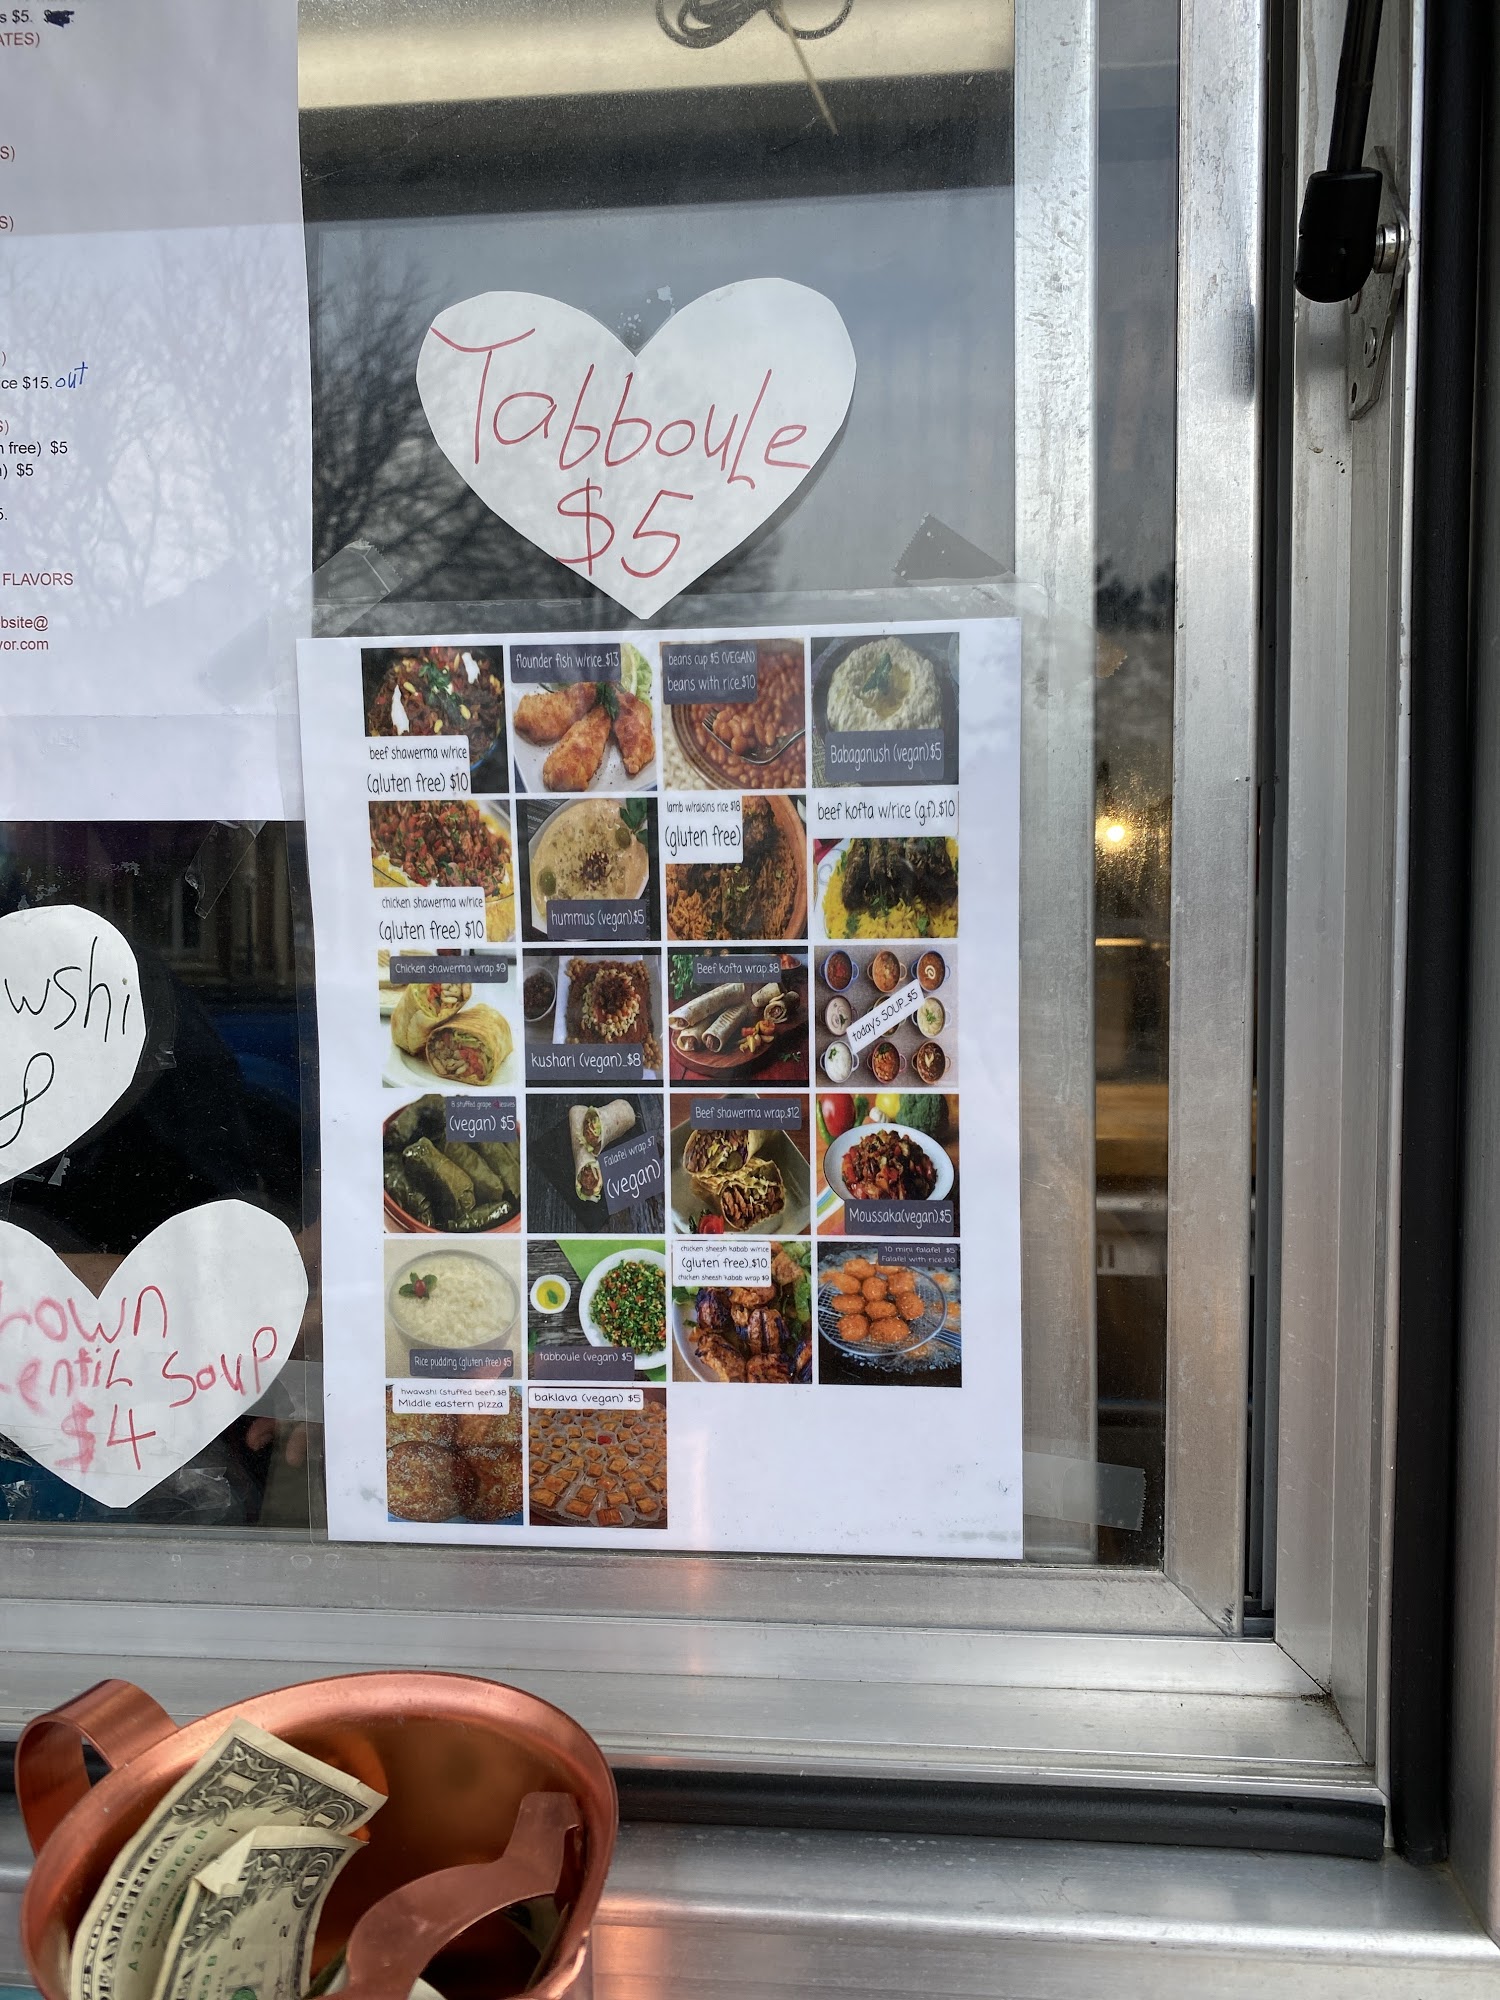 s $5.
ATES)
S)
S)
)
ce $15. out
S)
n free) $5
) $5
5.
FLAVORS
bsite@
vor.com
Tabboule
$5
wshi
8
rown
entil Soup
$4
beef shawerma w/rice
(gluten free) $10
flounder fish w/rice..$13
beans cup $5 (VEGAN)
beans with rice.$10
Babaganush (vegan).$5
chicken shawerma w/rice
(gluten free) $10
hummus (vegan).$5
lamb w/raisins rice $18
(gluten free)
beef kofta w/rice (g.f)..$10
Chicken shawerma wrap $9
kushari (vegan)..$8
Beef kofta wrap.$8
today's SOUP...$5
8 stuffed grape leaves
(vegan) $5
Falafel wrap.$7
(vegan)
Beef shawerma wrap.$12
Moussaka(vegan).$5
Rice pudding (gluten free) $5
tabboule (vegan) $5
chicken sheesh kabab w/rice
(gluten free).$10
chicken sheesh kabab wrap $9
10 mini falafel .$5
Falafel with rice.$10
hwawshi (stuffed beef).$8
Middle eastern pizza
baklava (vegan) $5
A 32753966 B